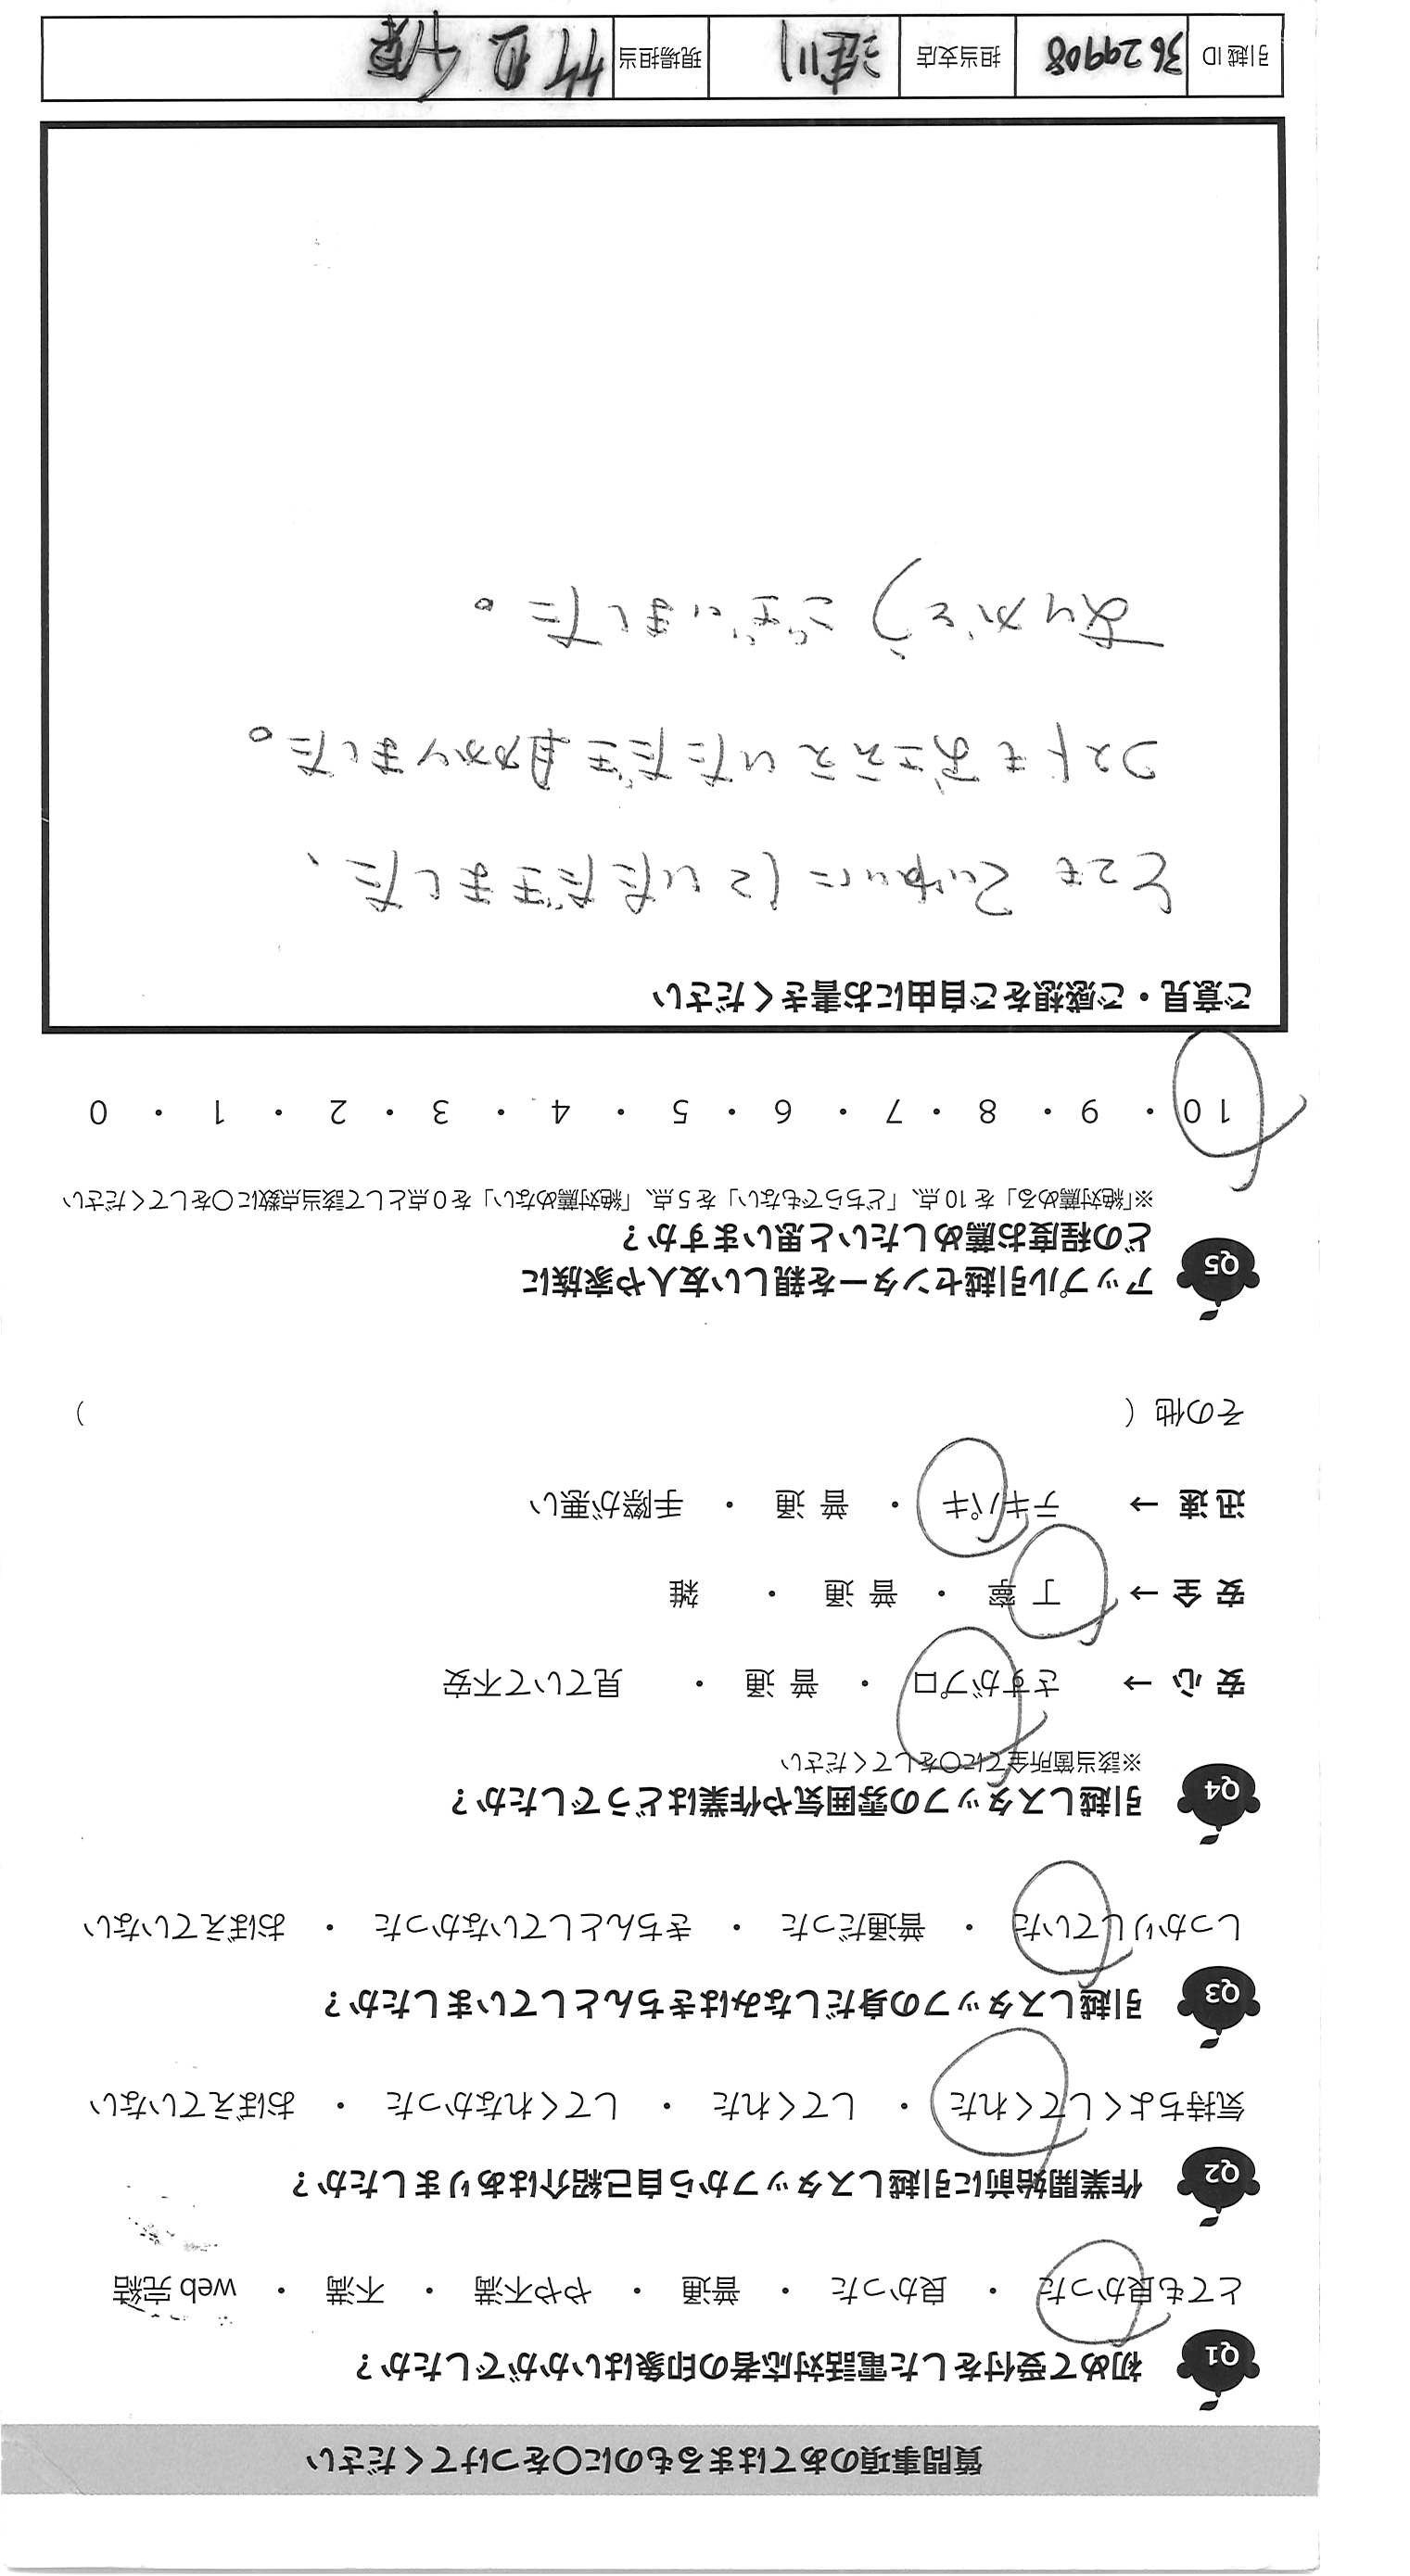 質問事項のあてはまるものに〇をつけてください
Q1 初めて受付をした電話対応者の印象はいかがでしたか？
とても良かった ・ 良かった ・ 普通 ・ やや不満 ・ 不満 ・ web 完結
Q2 作業開始前に引越しスタッフから自己紹介はありましたか？
気持ちよくしてくれた ・ してくれた ・ してくれなかった ・ おぼえていない
Q3 引越しスタッフの身だしなみはきちんとしていましたか？
しっかりしていた ・ 普通だった ・ きちんとしていなかった ・ おぼえていない
Q4 引越しスタッフの雰囲気や作業はどうでしたか？
※該当箇所全てに〇をしてください
安 心 → さすがプロ ・ 普 通 ・ 見ていて不安
安 全 → 丁 寧 ・ 普 通 ・ 雑
迅 速 → テキパキ ・ 普 通 ・ 手際が悪い
その他（ ）
Q5 アップル引越センターを親しい友人や家族に
どの程度お薦めしたいと思いますか？
※「絶対薦める」を 10 点、「どちらでもない」を 5 点、「絶対薦めない」を 0 点として該当点数に〇をしてください
10 ・ 9 ・ 8 ・ 7 ・ 6 ・ 5 ・ 4 ・ 3 ・ 2 ・ 1 ・ 0
ご意見・ご感想をご自由にお書きください
とてもていねいにしていただきました、
コストもおさえていただき助かりました。
ありがとうございました。
引越 ID 3629908 担当支店 現場担当